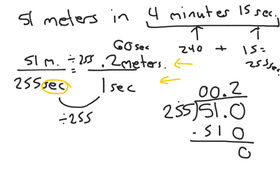 51 meters in 4 minutes 15 sec.
60 sec
240 + 15 =
255 sec
51 m. ÷255 .2 meters.
255 sec = 1 sec
÷255
00.2
255 51.0
- 51 0
0